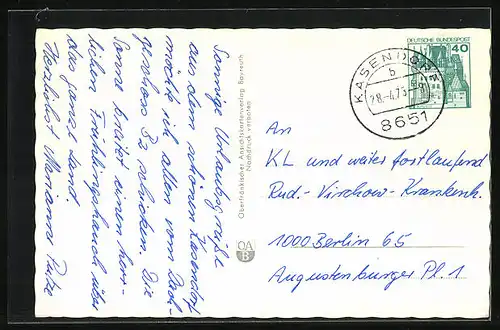 Sonnige Urlaubsgrüße
aus dem schönen Kasendorf
möcht ich allen vom Dach-
geschoss 82 schicken. Die
Sonne breitet einen herr-
lichen Frühlingshauch über
das ganze Land.
Herzlichst Marianne
Oberfränkischer Ansichtskartenverlag Bayreuth
Nachdruck verboten
OA
B
DEUTSCHE BUNDESPOST
40
KASENDORF
b
28.-4.79
8651
An
KL und weiter fortlaufend
Rud.-Virchow-Krankenh.
1000 Berlin 65
Augustenburger Pl. 1